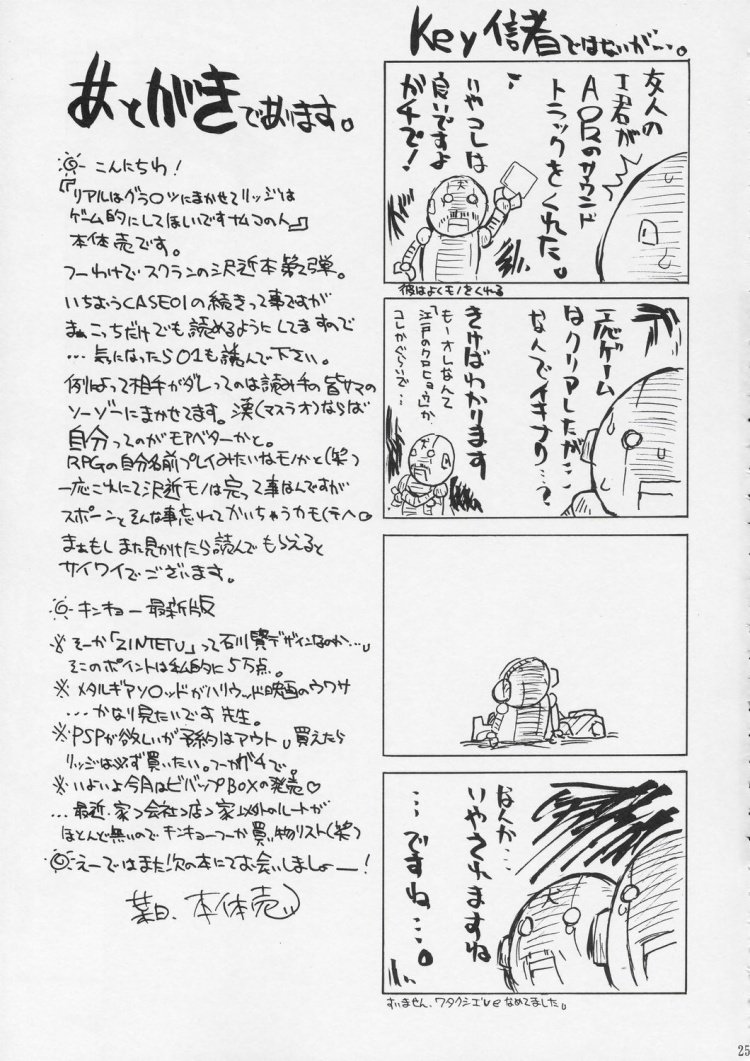 Key信者ではないが…。
友人の
I君が
AIRのサウンド
トラックをくれた。
いやコレは
良いですよ
ガチで!
彼はよくモノをくれる
一応ゲーム
はクリアしたが…
なんでイキナリ…?
きけばわかります
もーオレなんて
「江戸のクロヒョウ」か、
コレかぐらいで…
なんか…
いやされますね
…ですね…。
すいません、ワタクシエ've なめてました。
あとがきであります。
こんにちわ!
『リアルはグラ○ツにまかせてリッジは
ゲーム的にしてほしいですナムコのん』
本体売です。
つーわけでスクランの沢近本第2弾。
いちおうCASE01の続きって事ですが
まぁこっちだけでも読めるようにしてますので
…気になったら01も読んで下さい。
例によって相手がダレってのは読み手の皆サマの
ソーゾーにまかせてます。漢(マスラオ)ならば
自分ってのがモアベターかと。
RPGの自分名前プレイみたいなモノかと(笑)
一応これにて沢近モノは完って事なんですが
スポーンとそんな事忘れてかいちゃうカモ(テヘ。
まぁもしまた見かけたら読んでもらえると
サイワイでございます。
キンキョー最新版
※そーか「ZINTETU」って石川賢デザインなのか…。
そこのポイントは私的に5万点。
※メタルギアソ○ッドがハリウッド映画のウワサ
…かなり見たいです先生。
※PSPが欲しいが予約はアウト。買えたら
リッジは必ず買いたい。つーかガチで。
※いよいよ今月はビバップBOXの発売♡
…最近、家→会社→店→家以外のルートが
ほとんど無いのでキンキョーつーか買い物リスト(笑)
えーではまた次の本にてお会いしましょー!
本体売
25